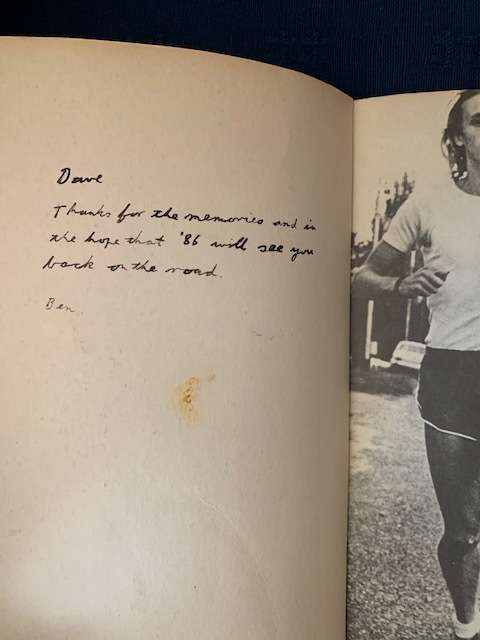 Dave
Thanks for the memories and in
the hope that '86 will see you
back on the road.
Ben.